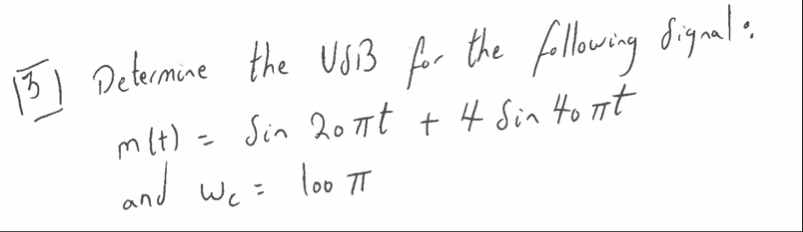 [3] Determine the USB for the following signal:
m(t) = Sin 20πt + 4 Sin 40πt
and Wc = 100π